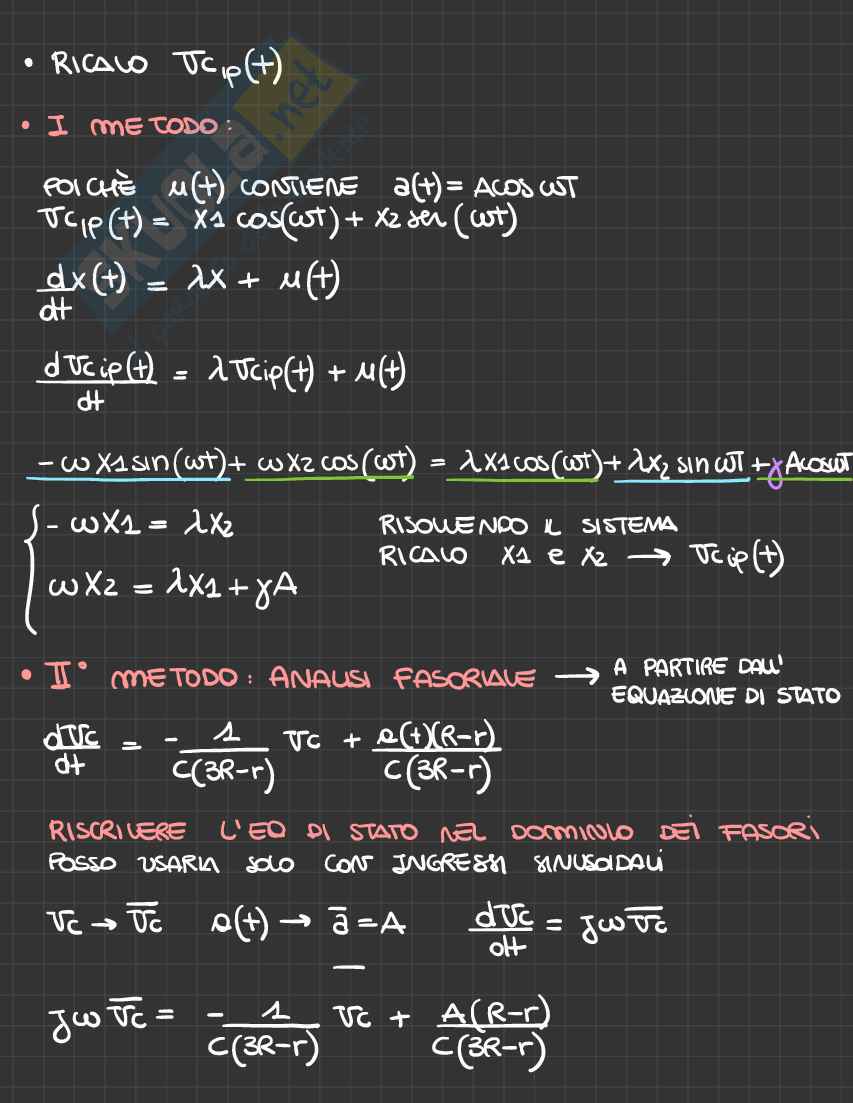 • RICALO Vc_ip(t)
• I METODO:
POICHÈ μ(t) CONTIENE a(t) = ACOS ωT
Vc_ip(t) = X1 cos(ωt) + X2 sen(ωt)
dx(t)/dt = λx + μ(t)
dVc_ip(t)/dt = λVc_ip(t) + μ(t)
- ωX1 sin(ωt) + ωX2 cos(ωt) = λX1 cos(ωt) + λX2 sin ωT + γAcosωT
{ - ωX1 = λX2
RISOLVENDO IL SISTEMA
RICALO X1 e X2 → Vc_ip(t)
ωX2 = λX1 + γA
• II° METODO: ANALISI FASORIALE → A PARTIRE DALL'
EQUAZIONE DI STATO
dVc/dt = - 1/C(3R-r) Vc + a(t)(R-r)/C(3R-r)
RISCRIVERE L'EQ DI STATO NEL DOMINIO DEI FASORI
POSSO USARLA SOLO CON INGRESSI SINUSOIDALI
Vc → V̅c̅ a(t) → a̅ = A dVc/dt = Jω V̅c̅
Jω V̅c̅ = - 1/C(3R-r) Vc + A(R-r)/C(3R-r)
SKUOLA.net